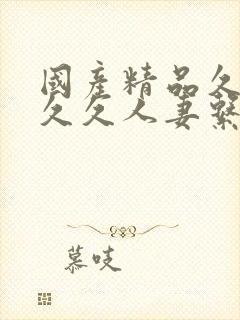 國產精品久
久久人妻繫
慕吱